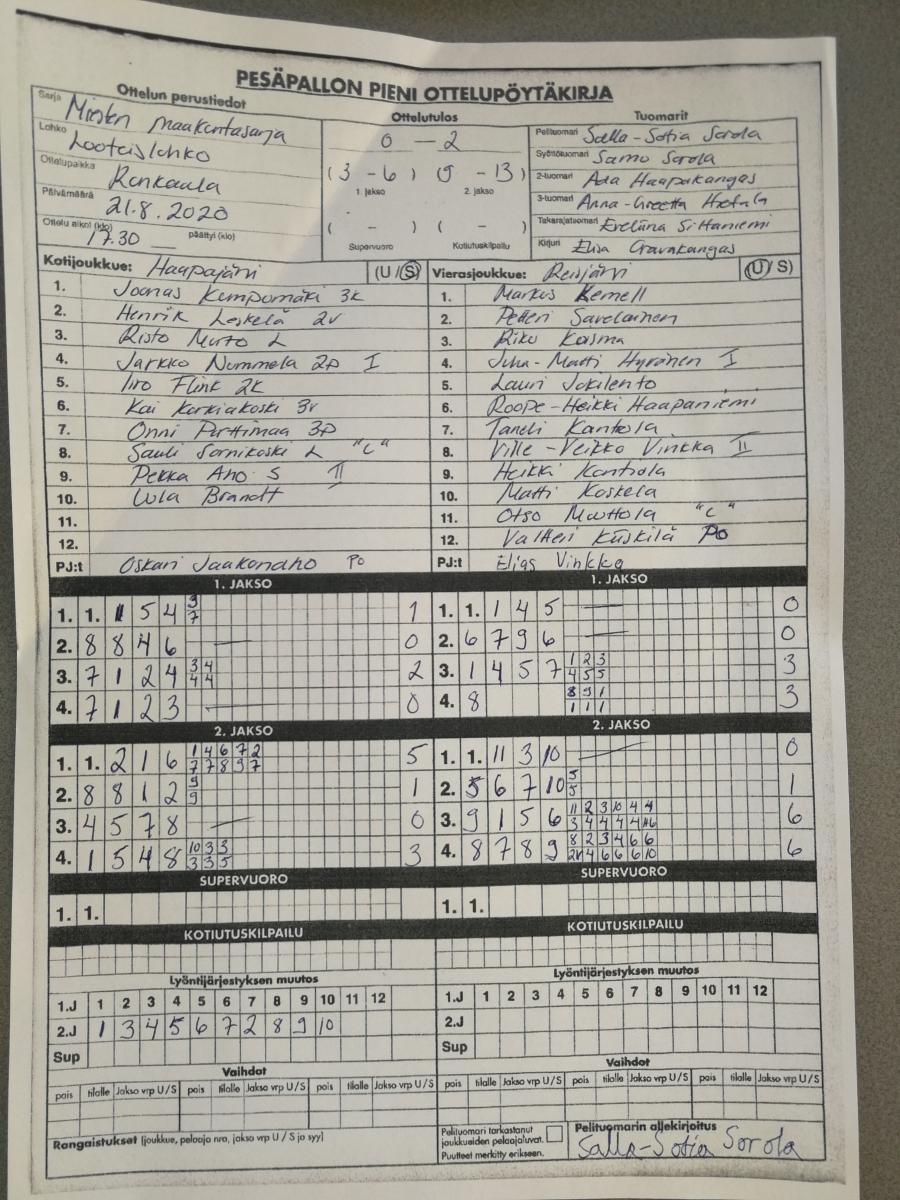 PESÄPALLON PIENI OTTELUPÖYTÄKIRJA
Ottelun perustiedot
Sarja Miesten maakuntasarja
Lohko Looteislohko
Ottelupaikka Ronkaala
Päivämäärä 21.8.2020
Ottelu alkoi (klo) 17.30 päättyi (klo)
Ottelutulos
0 - 2
(3 - 6) (9 - 13)
1. jakso 2. jakso
( - ) ( - )
Supervuoro Kotiutuskilpailu
Tuomarit
Pelituomari Salla-Sofia Sorola
Syöttötuomari Samo Sorola
2-tuomari Ada Haapakangas
3-tuomari Anna-Greetta
Takarajatuomari Eveliina Sittaniemi
Kirjuri Elisa
Kotijoukkue: Haapajärvi (U / S)
1. Joonas Kumpumäki 3k
2. Henrik Leskelä 2v
3. Risto Murto L
4. Jarkko Nummela 2p I
5. Iiro Flink 2k
6. Kai Korkiakoski 3v
7. Onni Perttimaa 3p
8. Sauli Sornikoski L "C"
9. Pekka Aho S II
10. Brandt
11.
12.
PJ:t Oskari Jaakonaho Po
Vierasjoukkue: Reisjärvi (U / S)
1. Markus Kemell
2. Petteri Savolainen
3. Riko Kaisma
4. Juha-Matti Hyvönen I
5. Lauri Jokilehto
6. Roope-Heikki Haapaniemi
7. Taneli Kantola
8. Ville-Veikko Vinkka II
9. Heikki Kontiola
10. Matti Koskela
11. Otso Muttola "C"
12. Valtteri Kiiskilä Po
PJ:t Elias Vinkka
1. JAKSO
1. 1. 1 5 4 9 7 1
2. 8 8 4 6 — 0
3. 7 1 2 4 3 4 4 4 2
4. 7 1 2 3 — 0
2. JAKSO
1. 1. 2 1 6 1 4 6 7 2 7 7 8 9 7 5
2. 8 8 1 2 9 9 1
3. 4 5 7 8 — 0
4. 1 5 4 8 10 3 3 3 3 5 3
SUPERVUORO
1. 1.
KOTIUTUSKILPAILU
1. JAKSO
1. 1. 1 4 5 — 0
2. 6 7 9 6 — 0
3. 1 4 5 7 1 2 3 4 5 5 3
4. 8 8 9 1 1 1 1 3
2. JAKSO
1. 1. 11 3 10 — 0
2. 5 6 7 10 5 5 1
3. 9 1 5 6 11 2 3 10 4 4 3 4 4 4 4 6
4. 8 7 8 9 8 2 3 4 6 6 4 6 6 6 10 6
SUPERVUORO
1. 1.
KOTIUTUSKILPAILU
Lyöntijärjestyksen muutos
1.J 1 2 3 4 5 6 7 8 9 10 11 12
2.J 1 3 4 5 6 7 2 8 9 10
Sup
Lyöntijärjestyksen muutos
1.J 1 2 3 4 5 6 7 8 9 10 11 12
2.J
Sup
Vaihdot
pois tilalle Jakso vrp U/S pois tilalle Jakso vrp U/S pois tilalle Jakso vrp U/S
Vaihdot
pois tilalle Jakso vrp U/S pois tilalle Jakso vrp U/S pois tilalle Jakso vrp U/S
Rangaistukset (joukkue, pelaaja nro, jakso vrp U / S ja syy)
Pelituomari tarkastanut
joukkueiden pelaajaluvat.
Puutteet merkitty erikseen.
Pelituomarin allekirjoitus
Salla-Sofia Sorola